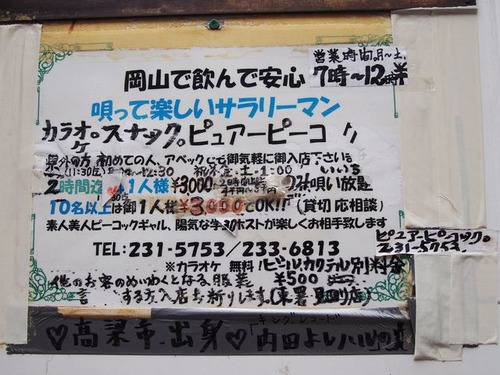 営業時間.月~土.
7時~12時半
岡山で飲んで安心
唄って楽しいサラリーマン
カラオケ。スナック。ピュアーピーコ
県外の方 初めての人、アベックでも御気軽に御入店下さいね
2時間迄 1人様¥3000 唄い放題
10名以上は御1人様¥3000でOK!! (貸切 応相談)
素人美人ピーコックギャル、陽気な学ホストが楽しくお相手致します
ピュアーピーコック。
231-5753.
TEL:231-5753/233-6813
※カラオケ 無料 ビール.カクテル別料金
他のお客のめいわくとなる服装 ¥500
言 する方入店お祈りします.
♡高梁市.出身♡